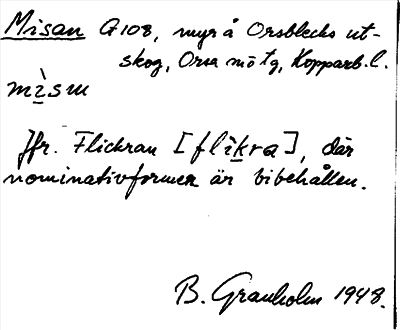 Misan G108, myr å Orsblecks ut-
skog, Orsa mötg, Kopparb. l.
mìsm
Jfr. Flickran [flìkra], där
nominativformen är bibehållen.
B. Granholm 1948.